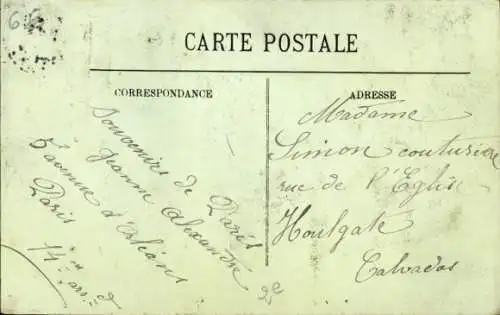 CARTE POSTALE
CORRESPONDANCE
Souvenirs de Paris
Jeanne Alexandre
5 avenue d'Orléans
Paris
14em arr.
ADRESSE
Madame
Simon couturière
rue de l'Eglise
Houlgate
Calvados